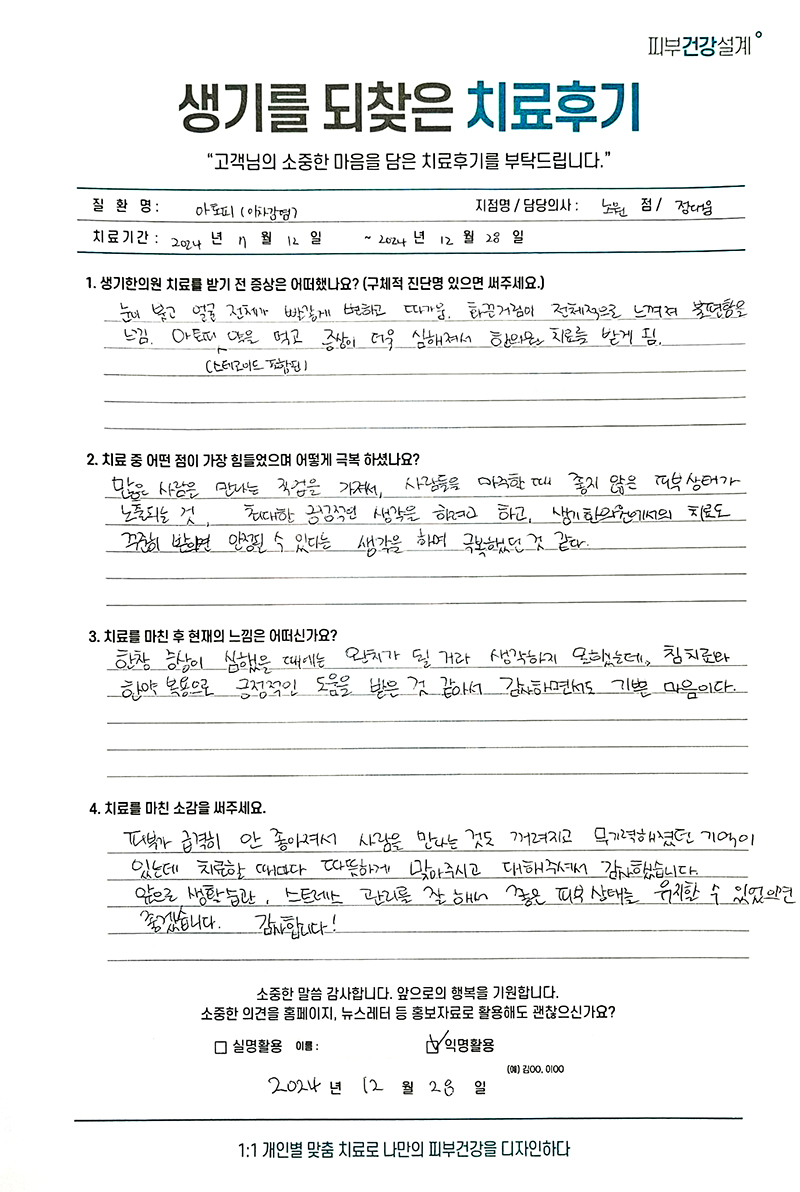 피부건강설계
생기를 되찾은 치료후기
“고객님의 소중한 마음을 담은 치료후기를 부탁드립니다.”
질 환 명 : 아토피 (이차감염) 지점명 / 담당의사 : 노원 점 / 정대웅
치료기간 : 2024 년 11 월 12 일 ~ 2024 년 12 월 28 일
1. 생기한의원 치료를 받기 전 증상은 어떠했나요? (구체적 진단명 있으면 써주세요.)
눈이 붓고 얼굴 전체가 빨갛게 변하고 따가움. 화끈거림이 전체적으로 느껴져 불편함을
느낌. 아토피 약을 먹고 증상이 더욱 심해져서 한의원 치료를 받게 됨.
(스테로이드 포함된)
2. 치료 중 어떤 점이 가장 힘들었으며 어떻게 극복 하셨나요?
많은 사람을 만나는 직업을 가져서, 사람들을 마주할 때 좋지 않은 피부상태가
노출되는 것, 최대한 긍정적인 생각을 하려고 하고, 생기한의원에서의 치료도
꾸준히 받으면 안정될 수 있다는 생각을 하며 극복했던 것 같다.
3. 치료를 마친 후 현재의 느낌은 어떠신가요?
한창 증상이 심했을 때에는 완치가 될 거라 생각하지 못하였는데, 침치료와
한약 복용으로 긍정적인 도움을 받은 것 같아서 감사하면서도 기쁜 마음이다.
4. 치료를 마친 소감을 써주세요.
피부가 급격히 안 좋아져서 사람을 만나는 것도 꺼려지고 무기력해졌던 기억이
있는데 치료할 때마다 따뜻하게 맞아주시고 대해주셔서 감사했습니다.
앞으로 생활습관, 스트레스 관리를 잘 해서 좋은 피부 상태를 유지할 수 있었으면
좋겠습니다. 감사합니다!
소중한 말씀 감사합니다. 앞으로의 행복을 기원합니다.
소중한 의견을 홈페이지, 뉴스레터 등 홍보자료로 활용해도 괜찮으신가요?
실명활용 이름 : 익명활용
(예) 김OO, 이OO
2024 년 12 월 28 일
1:1 개인별 맞춤 치료로 나만의 피부건강을 디자인하다